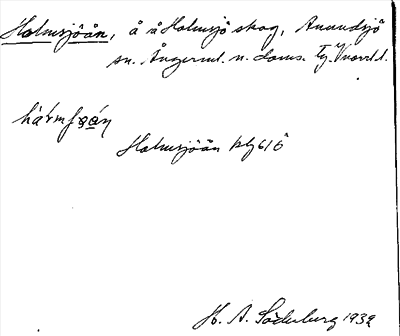 Holmsjöån, å å Holmsjö skog, Anundsjö
sn. Ångerml. n. doms. Tg. Vnorrl. l.
Holmsjöån bl 61 ö
H. A. Söderberg 1932